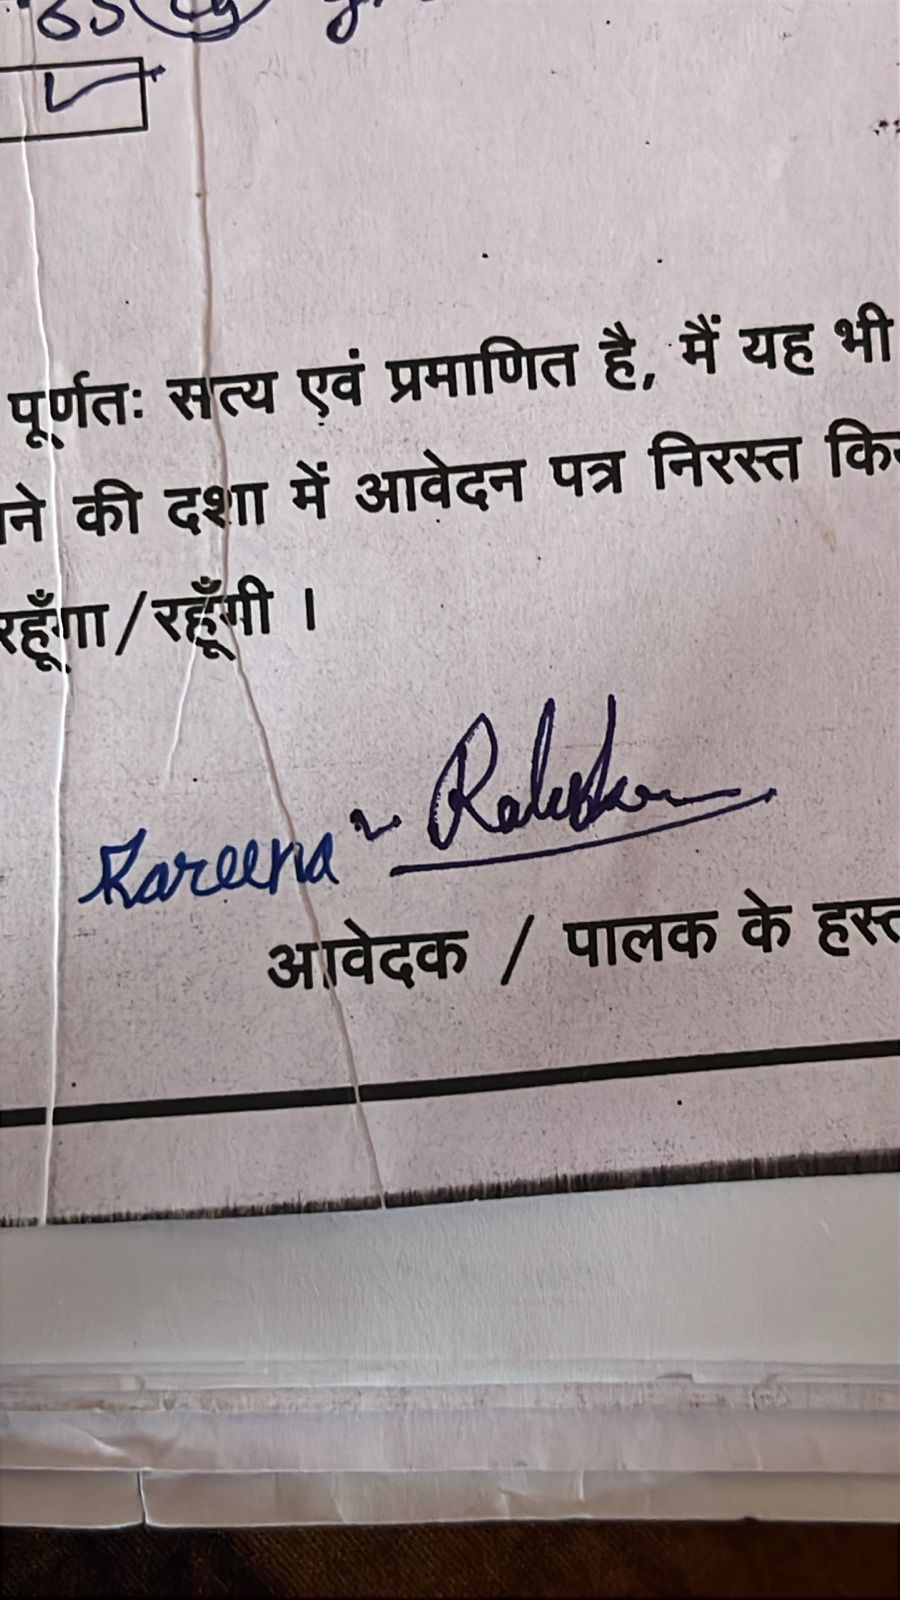 पूर्णतः सत्य एवं प्रमाणित है, मैं यह भी
की दशा में आवेदन पत्र निरस्त
रहूँगा/रहूँगी ।
Kareena
आवेदक / पालक के